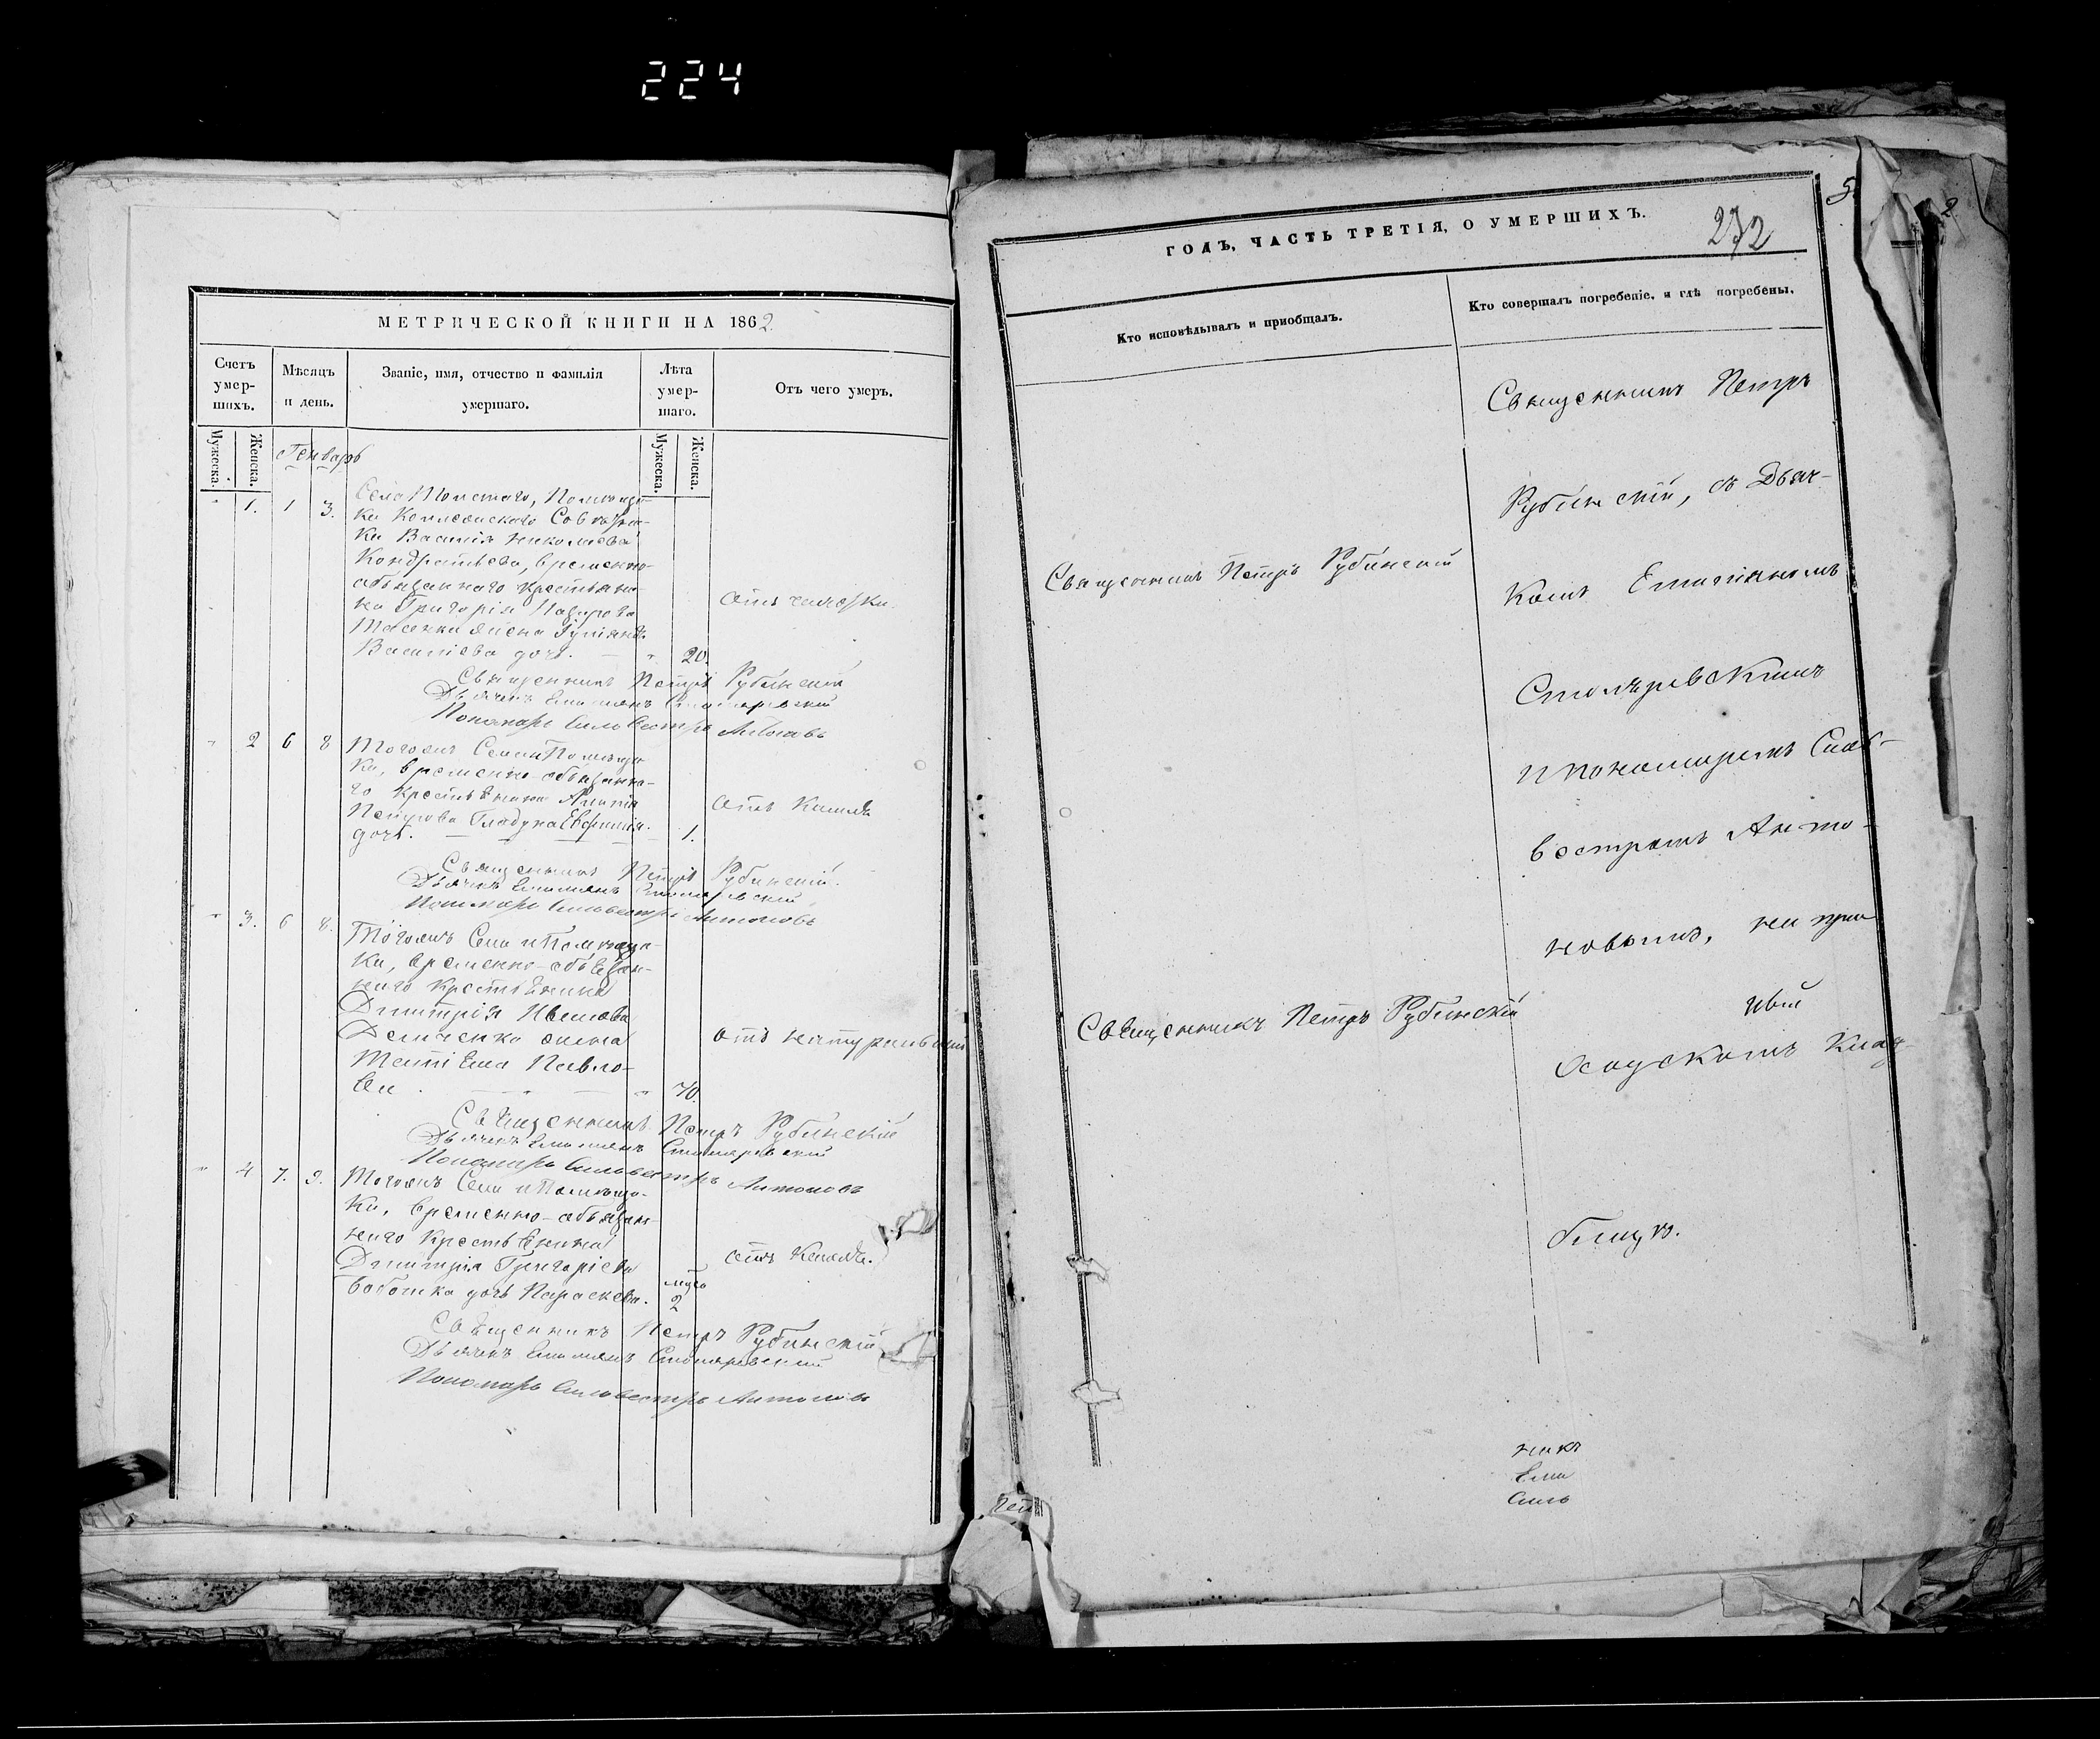 224
МЕТРИЧЕСКОЙ КНИГИ НА 1862
Счетъ умер-шихъ.
Мѣсяцъ и день.
Званіе, имя, отчество и фамилія умершаго.
Лѣта умер-шаго.
Отъ чего умеръ.
Мужеска.
Женска.
Мужеска.
Женска.
Генварь
" 1. 1 3.
Села Толстаго, Помѣщи-
ка Коллежскаго Совѣтни-
ка Василія Николаева
Кондратьева, временно-
обязаннаго крестьяни-
на Григорія
жена
Васильева дочь. " 20.
Отъ
Священникъ Петръ Рубинскій
Дьячекъ Емиліянъ Столяревскій
Пономарь Сильвестръ Антоновъ
" 2 6 8
Тогожъ Села и Помѣщи-
ка, временно-обязанна-
го крестьянина
Петрова Гладуна Евфимія
дочь. 1.
Отъ Кашля
Священникъ Петръ Рубинскій.
Дьячекъ Емиліянъ Столяревскій
Пономарь Сильвестръ Антоновъ
" 3. 6 8.
Тогожъ Села и Помѣщи-
ка, временно-обязан-
наго крестьянина
Димитрія Иванова
Демченко жена
Татіяна Павло-
ва. " 70.
Отъ натуральной
Священникъ Петръ Рубинскій
Дьячекъ Емиліянъ Столяревскій
Пономарь Сильвестръ Антоновъ
" 4 7. 9.
Тогожъ Села и Помѣщи-
ка, временно-обязан-
наго крестьянина
Димитрія Григоріева
дочь Параскева.
2
Отъ Кашля.
Священникъ Петръ Рубинскій
Дьячекъ Емиліянъ Столяревскій
Пономарь Сильвестръ Антоновъ
ГОДЪ, ЧАСТЬ ТРЕТІЯ, О УМЕРШИХЪ.
272
Кто исповѣдывалъ и пріобщалъ.
Кто совершалъ погребеніе, и гдѣ погребены.
Священникъ Петръ Рубинскій
Священникъ Петръ Рубинскій
Священникъ Петръ
Рубинскій, съ Дьяч-
комъ Емиліяномъ
Столяревскимъ
и пономаремъ Сил-
вестромъ Анто-
новымъ, на при
ходскомъ Клад-
бищѣ.
никъ
Еми
Силь